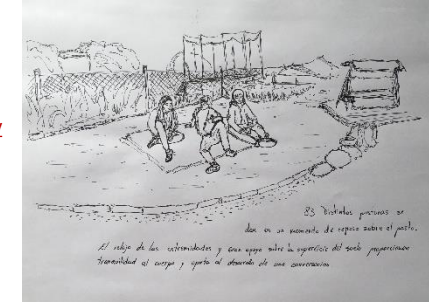 83 Distintas posturas se
dan en un momento de reposo sobre el pasto.
El relajo de las extremidades y gran apoyo sobre la superficie del suelo proporcionan
tranquilidad al cuerpo y aporta al desarrollo de una conversación